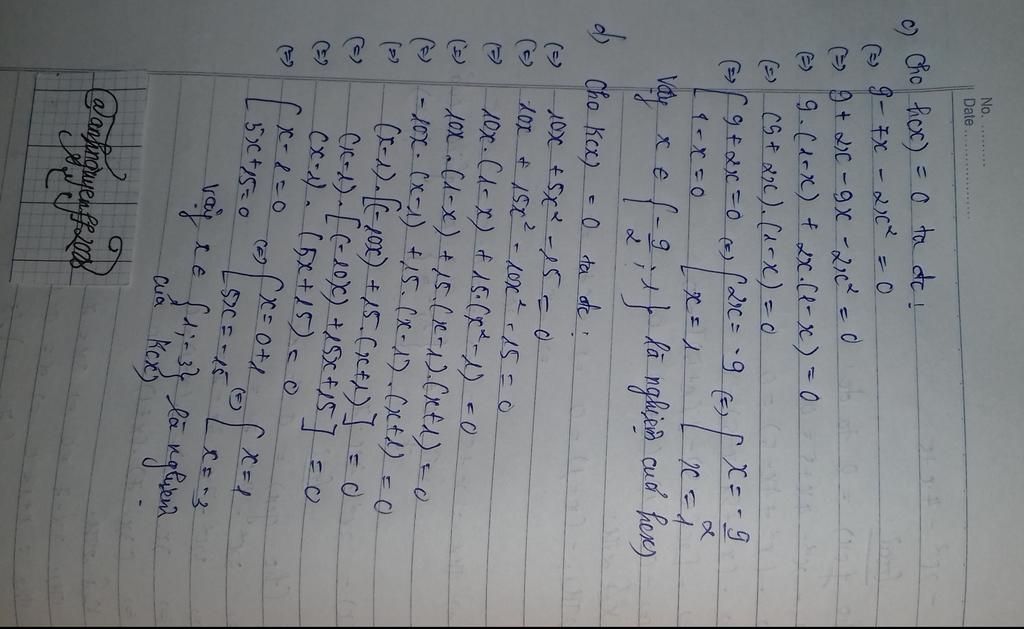 No. ............
Date ..................
c) Cho h(x) = 0 ta đc:
(=) 9 - 7x - 2x² = 0
(=) 9 + 2x - 9x - 2x² = 0
(=) 9.(1-x) + 2x.(1-x) = 0
(=) (9 + 2x).(1-x) = 0
(=) [ 9 + 2x = 0 (=) [ 2x = -9 (=) [ x = -9/2
1 - x = 0 x = 1 x = 1
Vậy x ∈ { -9/2 ; 1 } là nghiệm của h(x)
d) Cho k(x) = 0 ta đc:
(=) 10x + 5x² - 15 = 0
(=) 10x + 15x² - 10x² - 15 = 0
(=) 10x.(1-x) + 15.(x²-1) = 0
(=) 10x.(1-x) + 15.(x-1)(x+1) = 0
(=) -10x.(x-1) + 15.(x-1).(x+1) = 0
(=) (x-1).[(-10x) + 15.(x+1)] = 0
(=) (x-1).[(-10x) + 15x + 15] = 0
(=) (x-1).(5x+15) = 0
(=) [ x - 1 = 0 (=) [ x = 0+1 (=) [ x = 1
5x + 15 = 0 5x = -15 x = -3
Vậy x ∈ {1; -3} là nghiệm
của k(x)